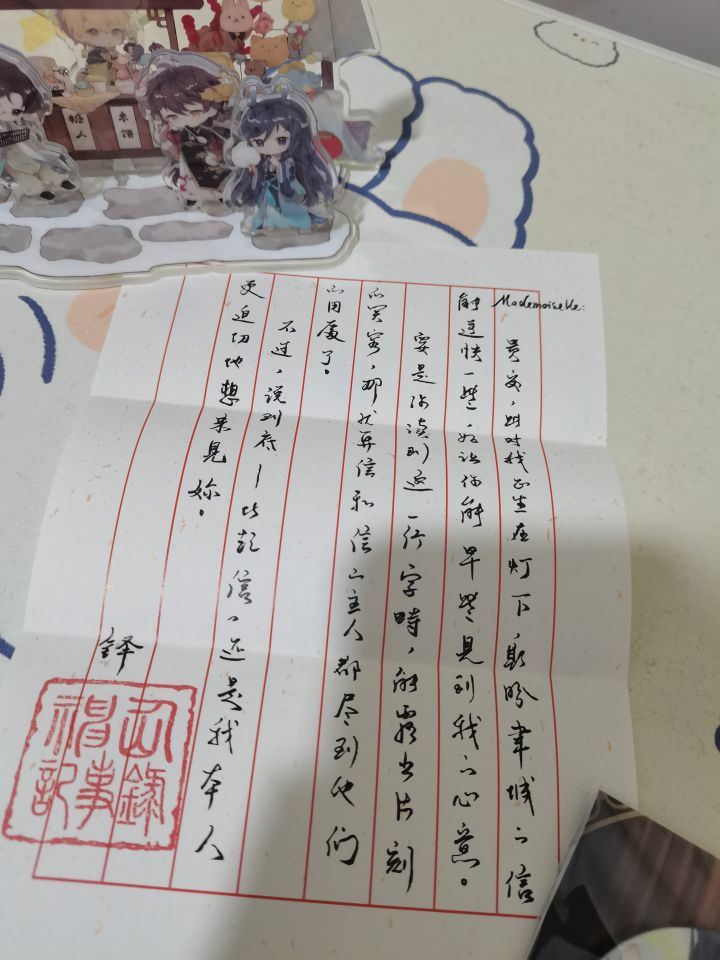 糖人
米饼
Mademoiselle:
贵安，此时我正坐在灯下，期盼聿城的信
能送快一些，好让你能早些见到我的心意。
要是你读到这一行字時，能露出片刻
的笑容，那就算信和信的主人都尽到他们
的用处了。
不过，说到底——比起信，还是我本人
更迫切地想来见妳。
铎